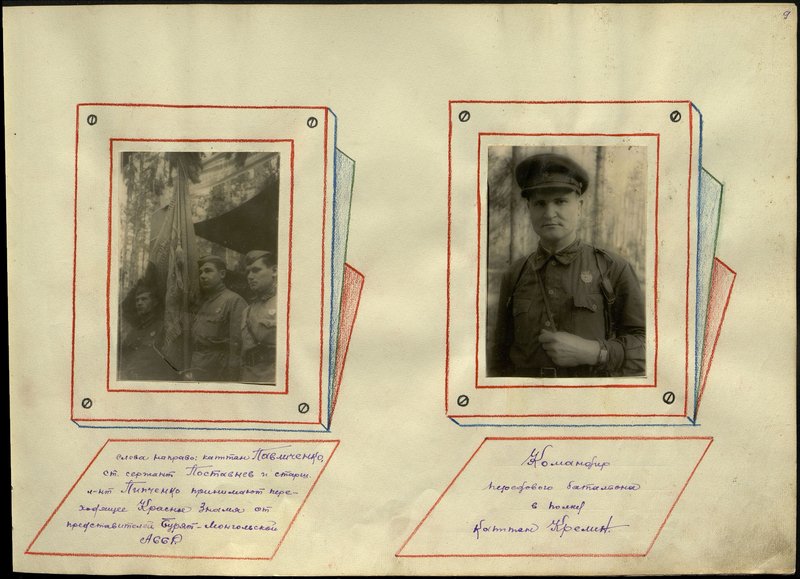 9
слева направо: капитан Павличенко,
ст. сержант Поставнев и старш.
л-нт Пипченко принимают пере-
ходящее Красное Знамя от
представителей Бурят-Монгольской
АССР
Командир
батальона
в полку
Капитан Кремин.